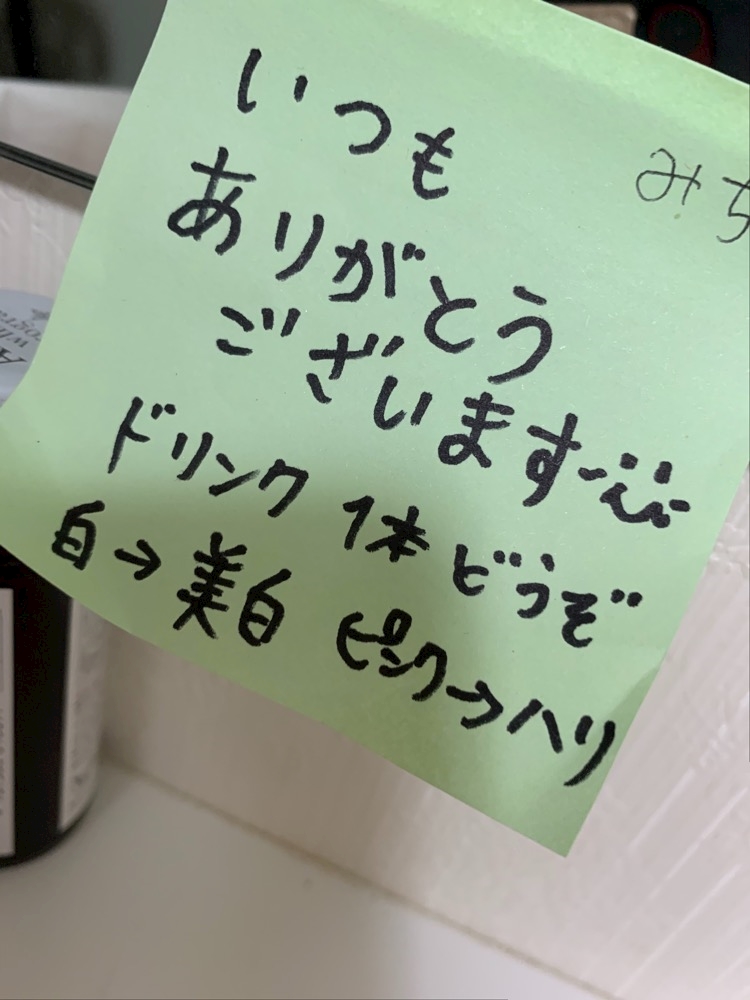 いつも
みち
ありがとう
ございます
ドリンク 1本 どうぞ
白→美白 ピンク→ハリ